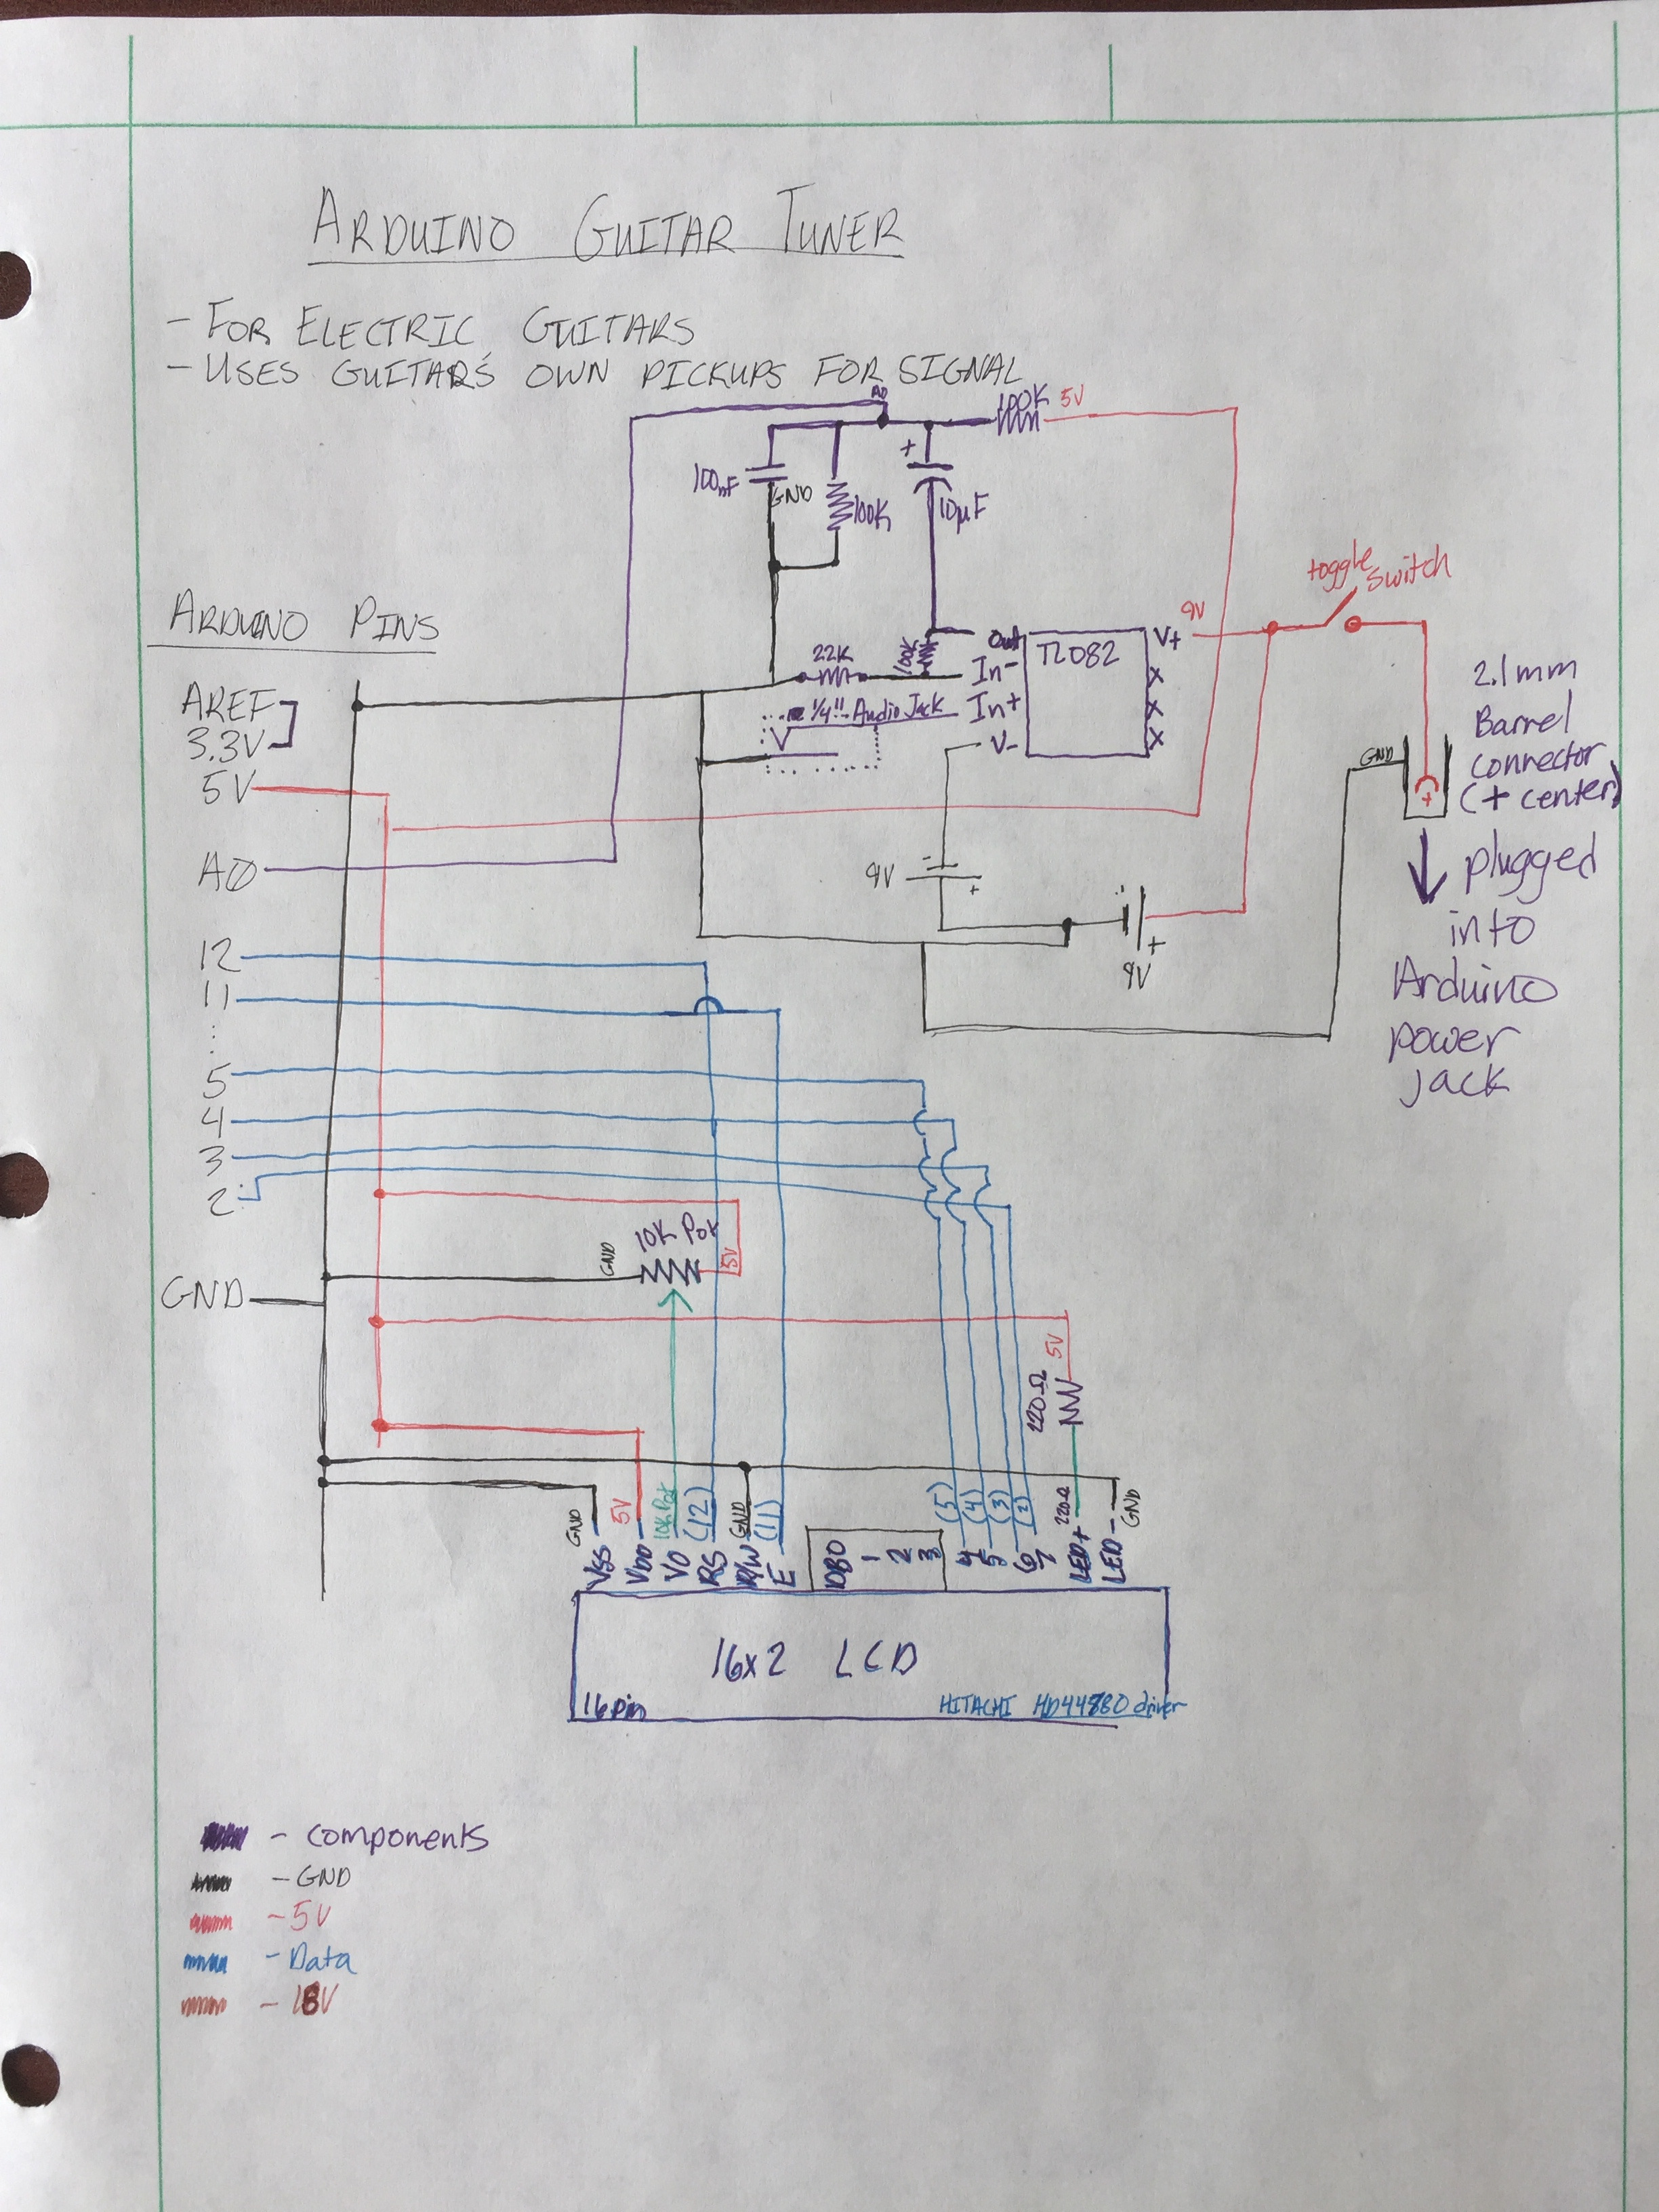 ARDUINO GUITAR TUNER
- FOR ELECTRIC GUITARS
- USES GUITAR'S OWN PICKUPS FOR SIGNAL
A0
100K
5V
+
100nF
GND
100K
10µF
toggle switch
9V
ARDUINO PINS
22K
100K
Out
TL082
V+
In-
X
1/4" Audio Jack
In+
X
V-
X
2.1mm
Barrel
connector
(+ center)
GND
+
plugged
into
Arduino
power
jack
AREF
3.3V
5V
A0
9V
-
+
-
+
9V
12
11
5
4
3
2
10K Pot
GND
5V
GND
5V
220Ω
GND
5V
10K Pot
(12)
GND
(11)
(5)
(4)
(3)
(2)
220Ω
GND
VSS
VDD
VO
RS
R/W
E
DB0
1
2
3
4
5
6
7
LED+
LED-
16x2 LCD
16 pin
HITACHI HD44780 driver
- components
- GND
- 5V
- Data
- 18V